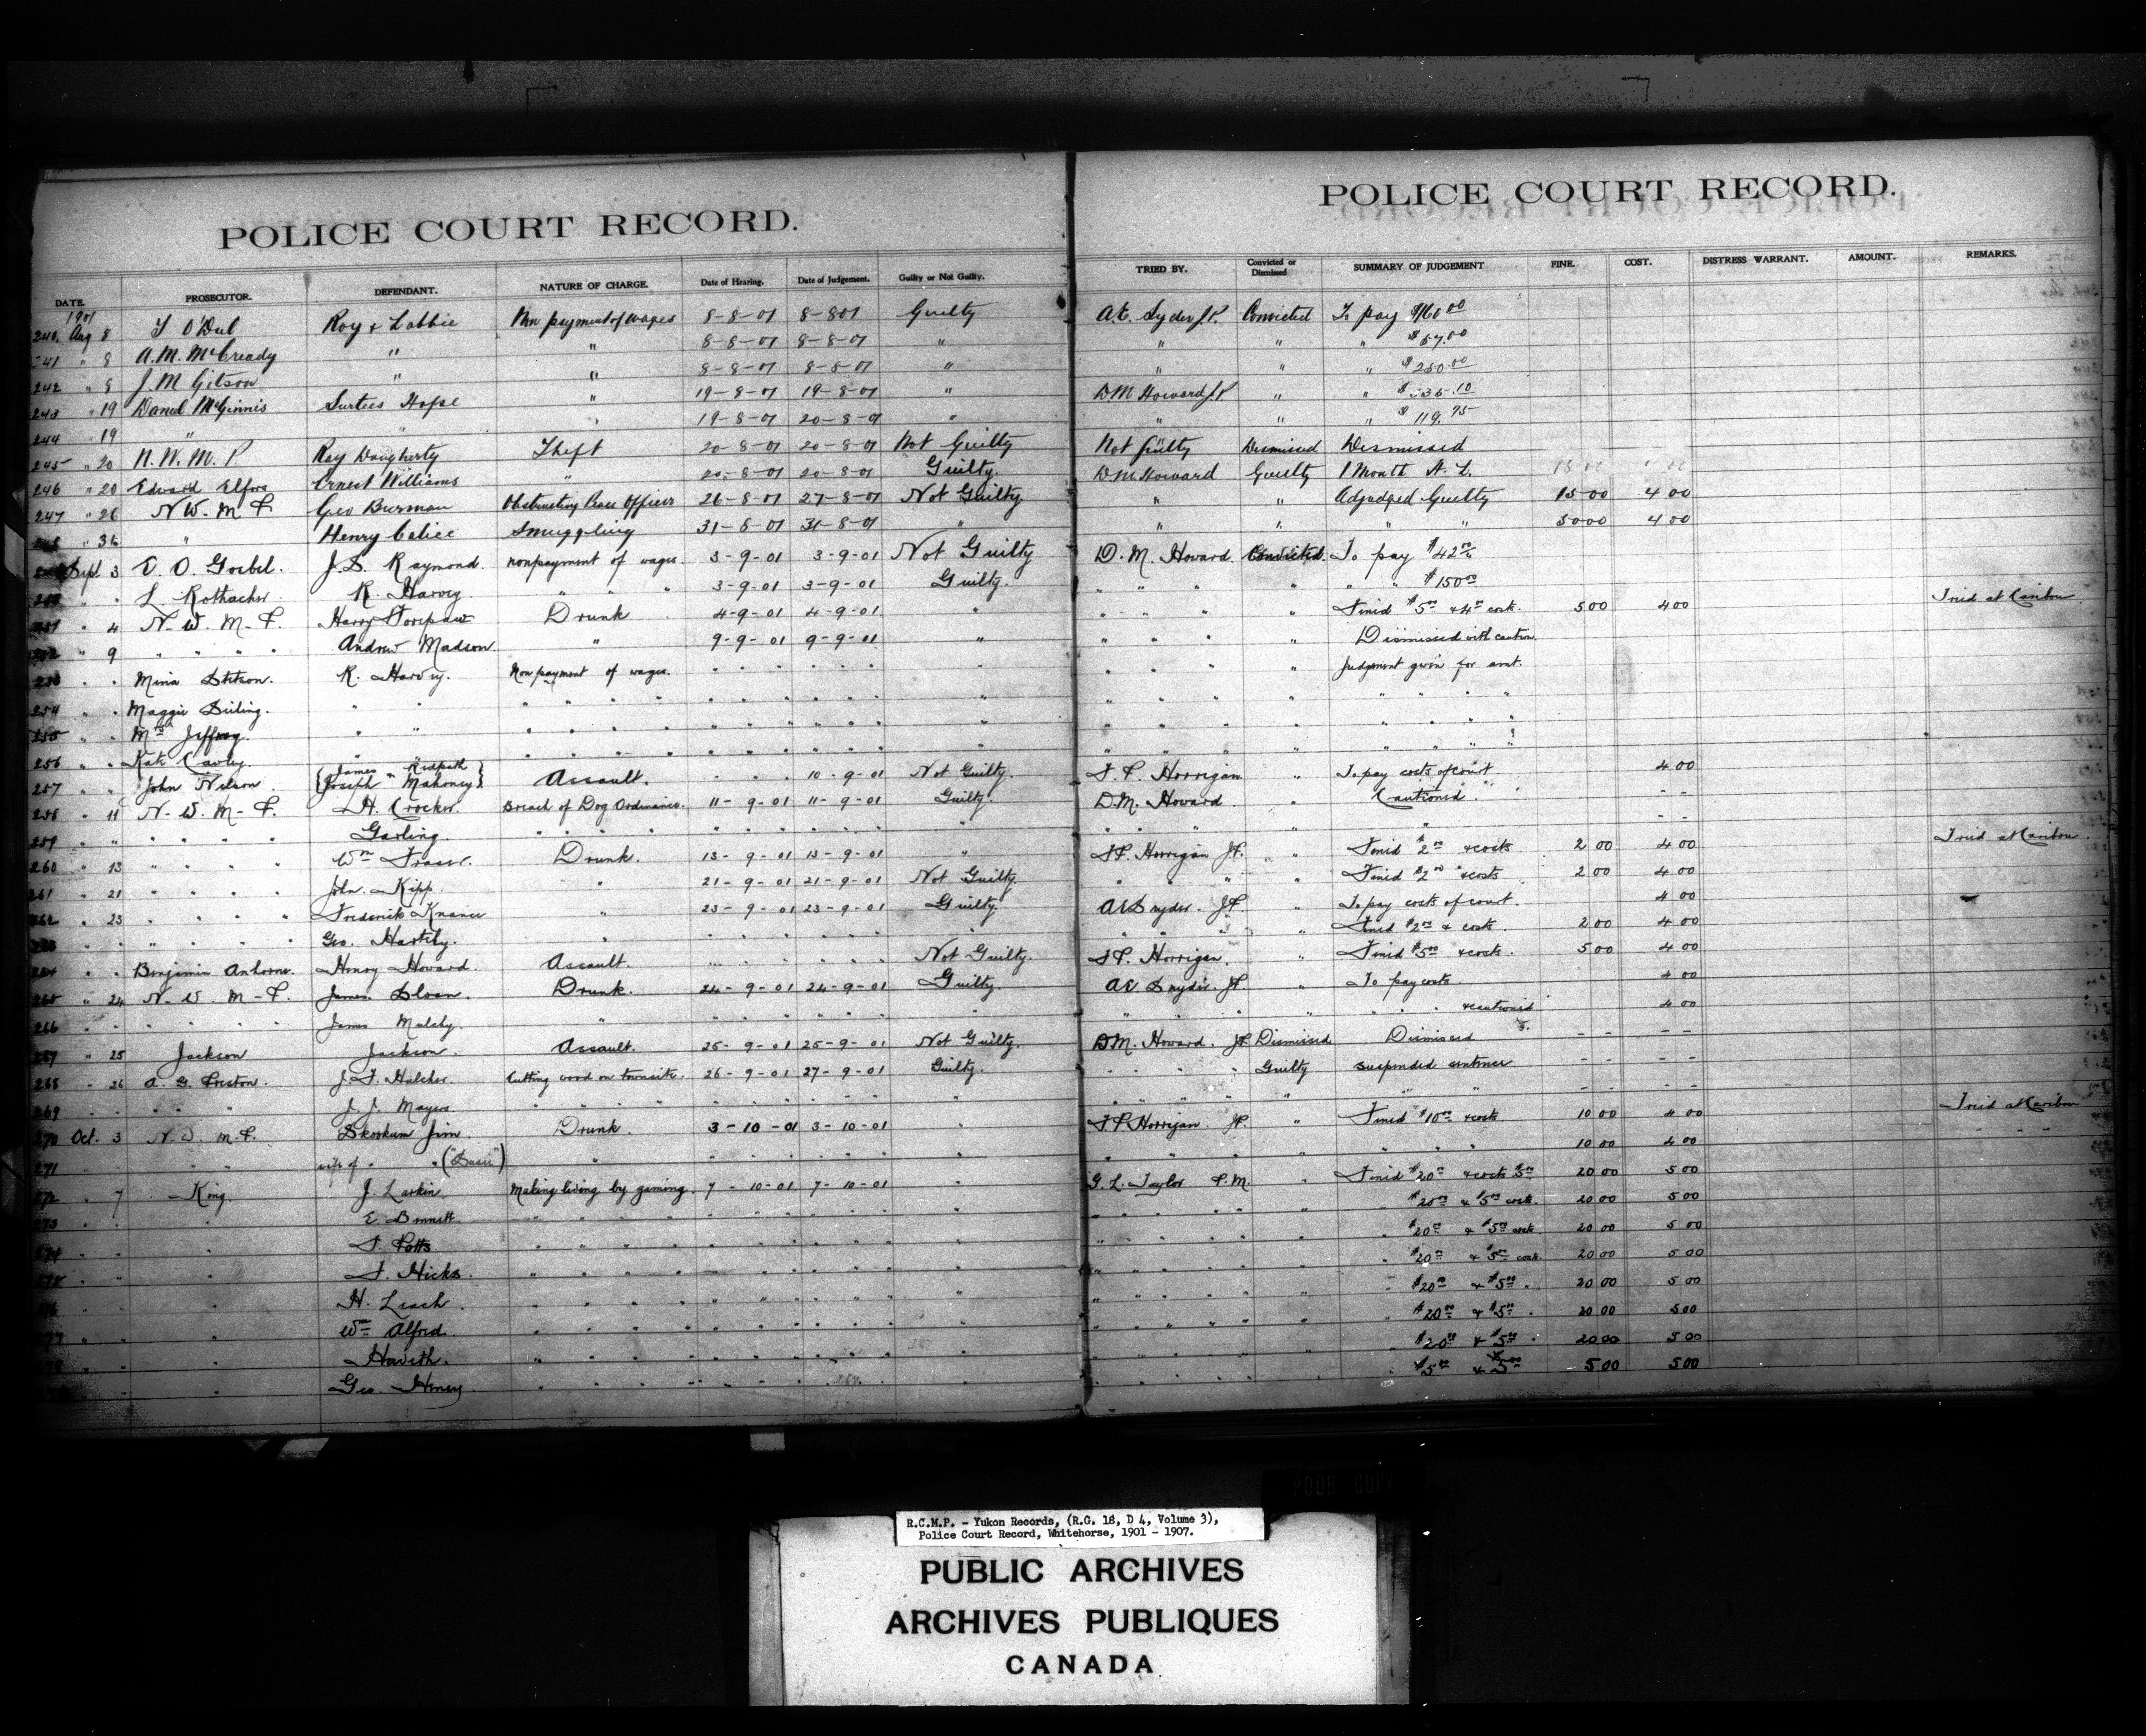 POLICE COURT RECORD.
DATE. PROSECUTOR. DEFENDANT. NATURE OF CHARGE. Date of Hearing. Date of Judgement. Guilty or Not Guilty.
1901
240 Aug 8 Roy & Labbie Non payment of wages 8-8-01 8-8-01 Guilty
241 " 8 A. M. McCready " " 8-8-01 8-8-01 "
242 " 8 J. M. " " 8-8-01 8-8-01 "
243 " 19 McGinnis Surtees Hope " 19-8-01 19-8-01 "
244 " 19 " " " 19-8-01 20-8-01 "
245 " 20 N. W. M. P. Ray Daugherty Theft 20-8-01 20-8-01 Not Guilty
246 " 20 Edward Ernest Williams " 20-8-01 20-8-01 Guilty.
247 " 26 N. W. M. P. Geo Burman Obstructing Peace Officer 26-8-01 27-8-01 Not Guilty
31 " Henry Calice Smuggling 31-8-01 31-8-01 "
Sept. 3 Goebel. J. S. Raymond. nonpayment of wages 3-9-01 3-9-01 Not Guilty
" " L Rothacher R. Harvey. " " " 3-9-01 3-9-01 Guilty.
" 4 N. W. M. P. Harry Drunk 4-9-01 4-9-01 "
" 9 " " " " Andrew Madson. " 9-9-01 9-9-01 "
" " Mina Stetson. R. Harvey. Non payment of wages. " " " " " " "
254 " " Maggie " " " " " " " " " " " " "
255 " " Mrs Jeffray. " " " " " " " " " " " " "
256 " " Kate Cawley. " " " " " " " " " " " " "
257 " " John Nelson. {James Redpath
Joseph Mahoney} Assault. " " " 10-9-01 Not Guilty.
258 " 11 N. W. M. P. H. Crocker. Breach of Dog Ordinance. 11-9-01 11-9-01 Guilty.
259 " " " " " " Garling. " " " " " " " " " " "
260 " 13 " " " " Wm Fraser. Drunk. 13-9-01 13-9-01 "
261 " 21 " " " " John. Kipp. " 21-9-01 21-9-01 Not Guilty.
262 " 23 " " " " Frederick " 23-9-01 23-9-01 Guilty.
" " " " " " Geo. Hartley. " " " " " " " "
264 " " Benjamin Henry Howard. Assault. " " " " " " Not Guilty.
265 " 24 N. W. M. P. James Sloan. Drunk. 24-9-01 24-9-01 Guilty.
266 " " " " " " James Mulchy. " " " " " " " "
267 " 25 Jackson Jackson. Assault. 25-9-01 25-9-01 Not Guilty.
268 " 26 A. G. Preston. J. F. Cutting wood on townsite. 26-9-01 27-9-01 Guilty.
269 " " " " " J. J. Mayers " " " " " " " " " " "
270 Oct. 3 N. W. M. P. Skookum Jim. Drunk. 3-10-01 3-10-01 "
271 " " " " " wife of " " " " " " " " " "
272 " 7 King. J. Larkin. Making living by gaming. 7-10-01 7-10-01 "
273 " " " E. Bennett " " " " " " " " " " "
274 " " " Potts. " " " " " " " " " " "
" " " Hicks. " " " " " " " " " " "
" " " H. Leach. " " " " " " " " " " "
" " " Wm Alfred. " " " " " " " " " " "
" " " " " " " " " " " " " "
" " Geo. Henry " " " " " " " " " " "
POLICE COURT RECORD.
TRIED BY. Convicted or Dismissed SUMMARY OF JUDGEMENT FINE. COST. DISTRESS WARRANT. AMOUNT. REMARKS.
Convicted To pay
" " "
" " " $250.00
D M Howard J.P. " "
" " " $119.75
Not Guilty Dismissed Dismissed
D M Howard Guilty 1 Month H. L.
" " Adjudged Guilty 15 00 4 00
" " " " 50 00 4 00
D. M. Howard. Convicted. To pay $42
" " " " " " $150.00
" " " " Fined $5.00 & 4.00 costs. 5 00 4 00 Tried at Caribou
" " " " Dismissed with caution
" " " " Judgment given for amt.
" " " " " " " "
" " " " " " " "
" " " " " " " "
Horrigan " To pay costs of court 4 00
D. M. Howard. " Cautioned. - -
" " " " " - -
Horrigan J.P. " Fined $2.00 & costs 2 00 4 00 Tried at Caribou
" " " " Fined $2.00 & costs 2 00 4 00
A E Snyder. J.P. " To pay costs of court. 4 00
" " " " Fined $2.00 & costs. 2 00 4 00
Horrigan. " Fined $5.00 & costs. 5 00 4 00
A E Snyder. J.P. " To pay costs. 4 00
" " " " " " & cautioned 4 00
D M. Howard. J.P. Dismissed Dismissed - - - -
" " " " Guilty suspended sentence - - - -
" " " " " " " - - - -
Horrigan. J.P. " Fined $10.00 & costs. 10 00 4 00 Tried at Caribou
" " " " " " 10 00 4 00 " " "
G. L. Taylor P. M. " Fined $20.00 & costs $5.00 20 00 5 00
" " " " " " $20.00 & $5.00 costs. 20 00 5 00
" " " " " " $20.00 & $5.00 costs 20 00 5 00
" " " " " " $20.00 & $5.00 costs. 20 00 5 00
" " " " " " $20.00 & $5.00 " 20 00 5 00
" " " " " " $20.00 & $5.00 " 20 00 5 00
" " " " " " $20.00 & $5.00 " 20 00 5 00
" " " " " " $5.00 & $5.00 5 00 5 00
POOR COPY
R.C.M.P. - Yukon Records, (R.G. 18, D 4, Volume 3),
Police Court Record, Whitehorse, 1901 - 1907.
PUBLIC ARCHIVES
ARCHIVES PUBLIQUES
CANADA